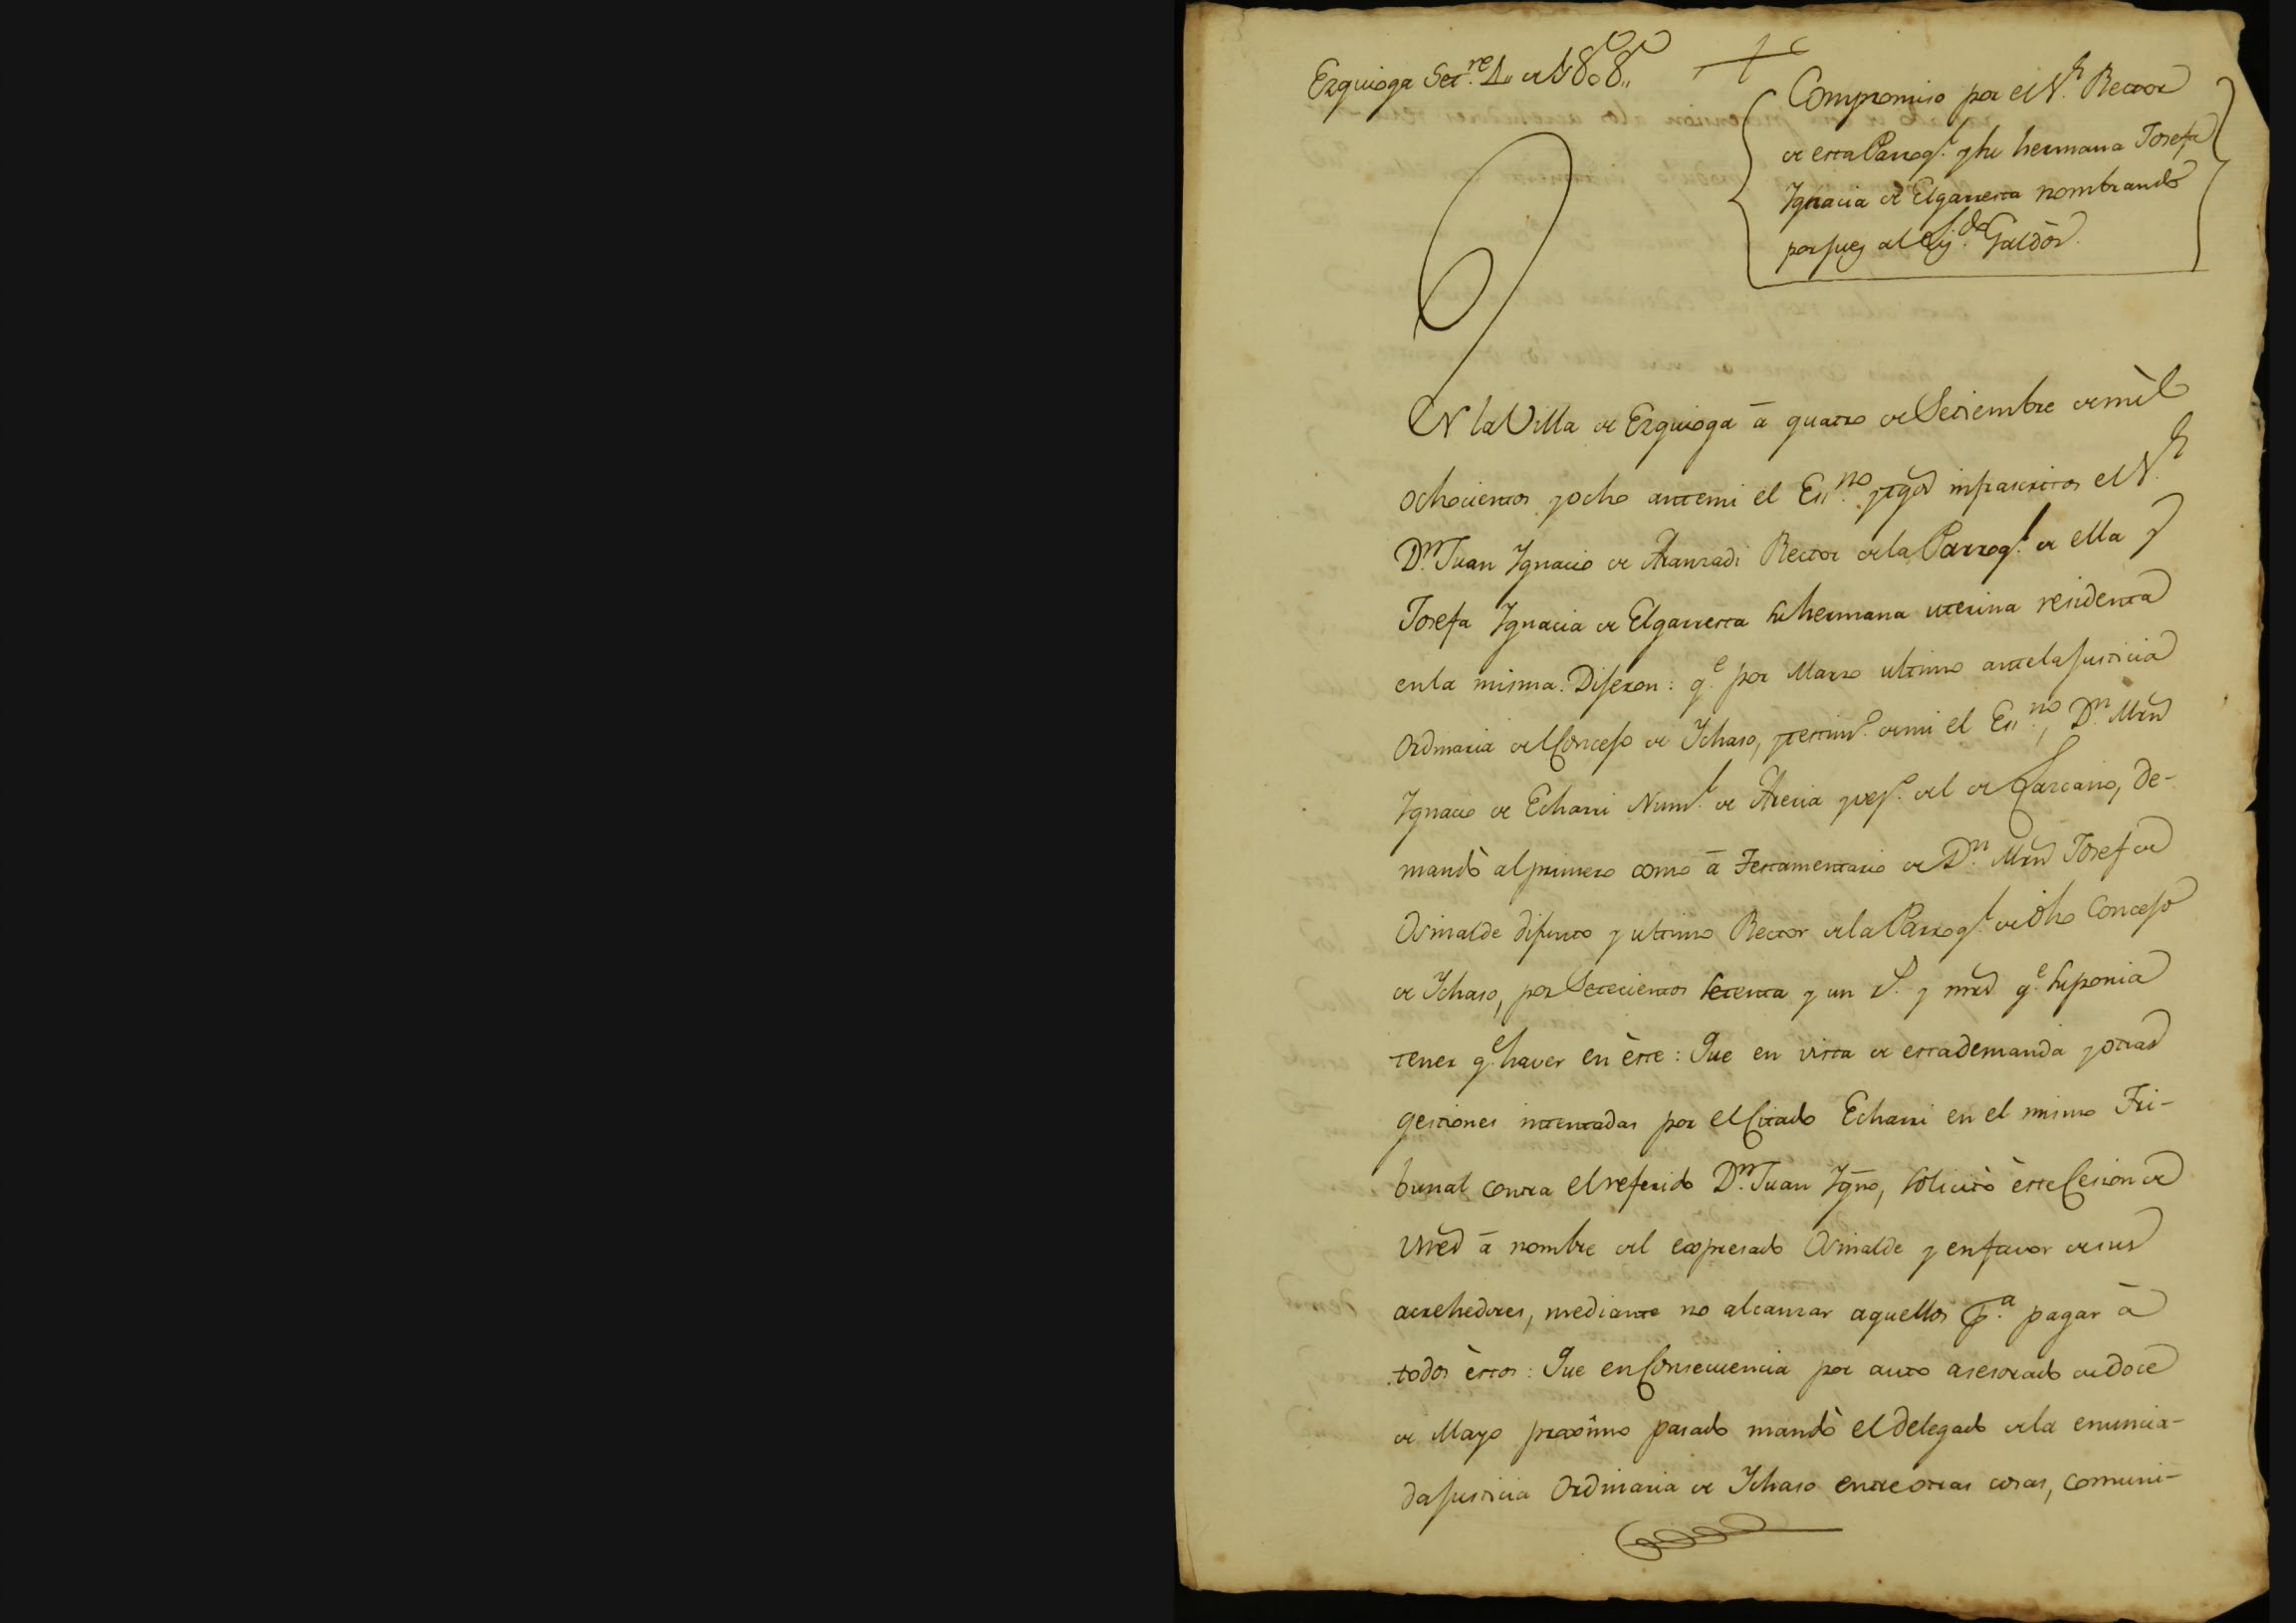 Ezquioga Set.re 4,, de 1808,,
Compromiso por el S.r Rector
de esta Parroq.l y su hermana Josefa
Ignacia de Elgarresta nombrando
por juez al Liz.do Galdós
EN la Villa de Ezquioga â quatro de Setiembre de mìl
ochocientos y ocho ante mi el Ess.no y tgos infrascritos el S.r
D.n Juan Ignacio de Aranzadi Rector de la Parroq.l de ella y
Josefa Ignacia de Elgarresta su hermana uterina residenta
en la misma. Dijeron: q.e por Marzo ultimo ante la justicia
Ordinaria del Concejo de Ichaso, y testim.o de mi el Ess.no, D.n Mrn
Ignacio de Echarri Num.l de Areria y vez.o del de Lazcano, de-
mandò al primero como â Testamentario de D.n Mrn Josef de
Osinalde difunto y ultimo Rector de la Parroq.l de dho Concejo
de Ichaso, por Setecientos setenta y un r.s y mrs q.e suponia
tener q.e haver en èste: Que en vista de esta demanda y otras
gestiones intentadas por el Citado Echarri en el mismo Tri-
bunal contra el referido D.n Juan Ygno, solicitò èste Cesion de
Vnes â nombre del expresado Osinalde y en favor de sus
acrehedores, mediante no alcanzar aquellos p.a pagar à
todos èstos: Que en Consecuencia por auto asesorado de doce
de Mayo proximo pasado mandò el delegado de la enuncia-
da justicia Ordinaria de Ichaso entre otras cosas, comuni-